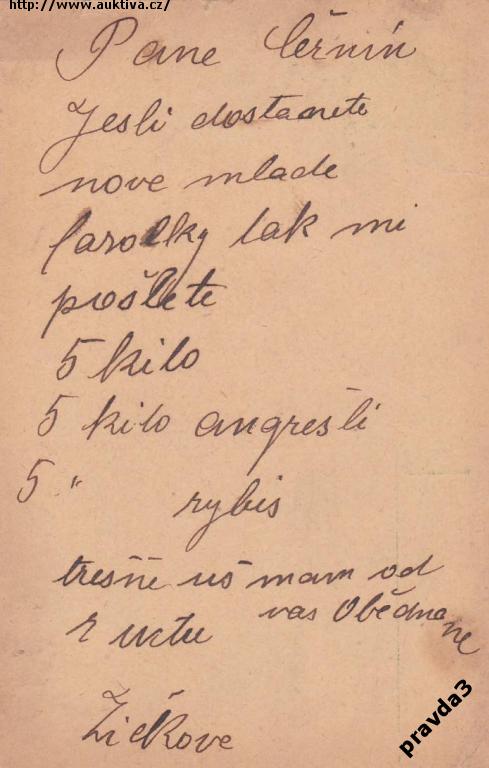 http://www.auktiva.cz/
Pane Černín
Jesli dostanete
nove mlade
tak mi
pošlete
5 kilo
5 kilo angrešli
5 " rybis
trešně uš mam od
vas Obědnane
z uctu
Zičkove
pravda3